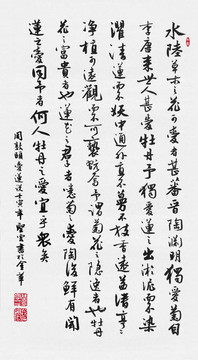 水陸草木之花可愛者甚蕃晉陶淵明獨愛菊自
李唐来世人甚愛牡丹予獨愛蓮之出淤泥而不染
濯清漣而不妖中通外直不蔓不枝香遠益清亭亭
淨植可遠觀而不可褻玩焉予謂菊花之隱逸者也牡丹
花之富貴者也蓮花之君子者也噫菊之愛陶後鮮有聞
蓮之愛同予者何人牡丹之愛宜乎眾矣
周敦頤愛蓮說壬寅年聖雲書於金華